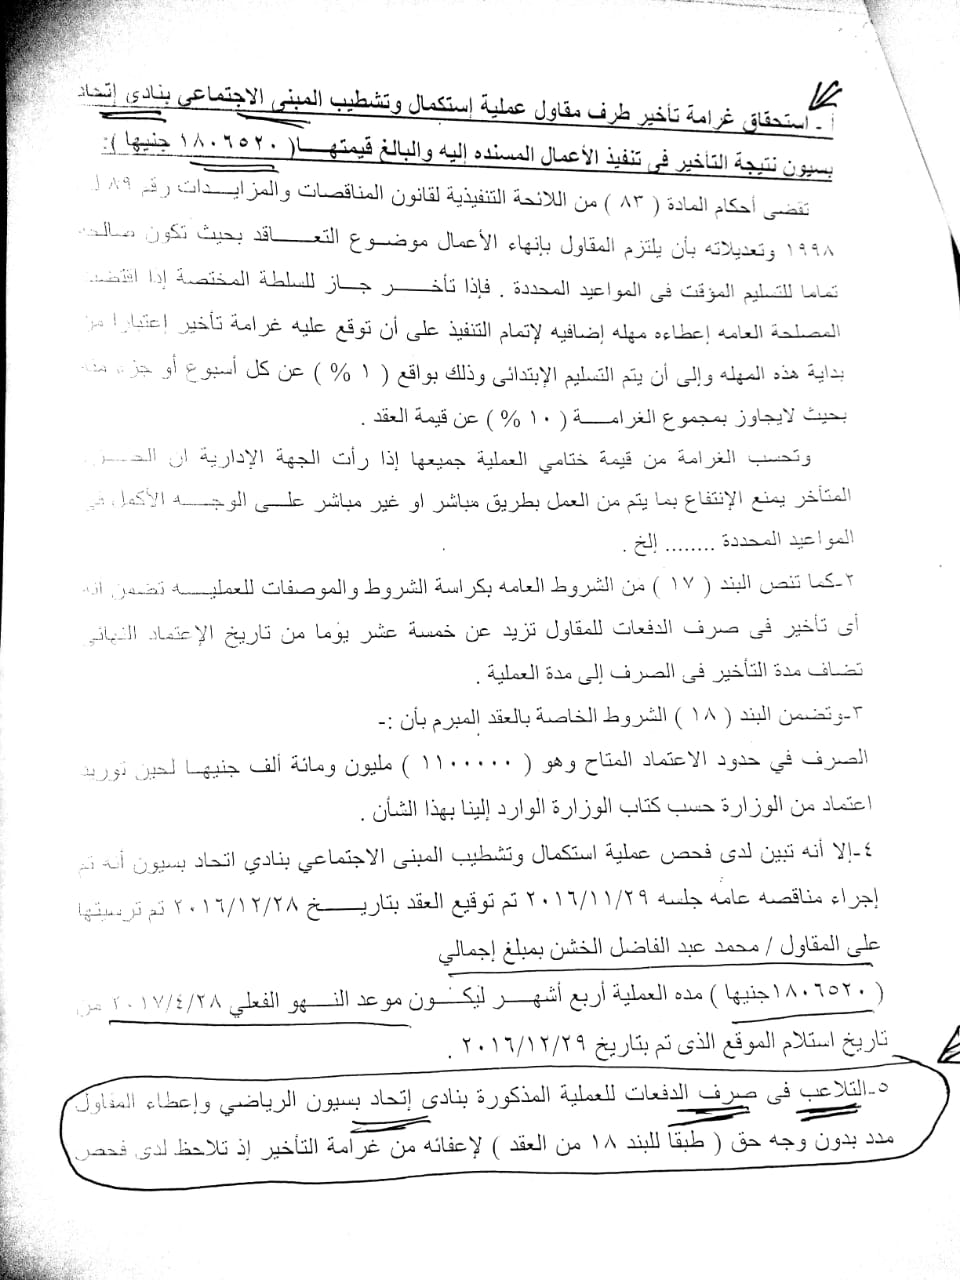 أ - استحقاق غرامة تأخير طرف مقاول عملية إستكمال وتشطيب المبنى الاجتماعي بنادى إتحاد
بسيون نتيجة التأخير فى تنفيذ الأعمال المسنده إليه والبالغ قيمتهـــا( ١٨٠٦٥٢٠ جنيها ):
تقضى أحكام المادة ( ٨٣ ) من اللائحة التنفيذية لقانون المناقصات والمزايـــدات رقم ٨٩ ل
١٩٩٨ وتعديلاته بأن يلتزم المقاول بإنهاء الأعمال موضـــوع التعـــــاقد بحيث تكون صالحه
تماما للتسليم المؤقت فى المواعيد المحددة . فإذا تأخـــــر جـــاز للسلطة المختصة إذا اقتضت
المصلحة العامه إعطاءه مهله إضافيه لإتمام التنفيذ على أن توقع عليه غرامة تأخير إعتبارا من
بداية هذه المهله وإلى أن يتم التسليم الإبتدائى وذلك بواقع ( ١ % ) عن كل أسبوع أو جزء منه
بحيث لايجاوز بمجموع الغرامــــة ( ١٠ % ) عن قيمة العقد .
وتحسب الغرامة من قيمة ختامي العملية جميعها إذا رأت الجهة الإدارية ان الجـــزء
المتأخر يمنع الإنتفاع بما يتم من العمل بطريق مباشر او غير مباشر علـــى الوجـــه الأكمل في
المواعيد المحددة ........ إلخ .
٢-كما تنص البند ( ١٧ ) من الشروط العامه بكراسة الشروط والموصفات للعمليـــه تضمن انه
أى تأخير فى صرف الدفعات للمقاول تزيد عن خمسة عشر يوما من تاريخ الإعتماد النهائي
تضاف مدة التأخير فى الصرف إلى مدة العملية .
٣-وتضمن البند ( ١٨ ) الشروط الخاصة بالعقد المبرم بأن :-
الصرف في حدود الاعتماد المتاح وهو ( ١١٠٠٠٠٠ ) مليون ومائة ألف جنيهـا لحين توريد
اعتماد من الوزارة حسب كتاب الوزارة الوارد إلينا بهذا الشأن .
٤-إلا أنه تبين لدى فحص عملية استكمال وتشطيب المبنى الاجتماعي بنادي اتحاد بسيون أنه تم
إجراء مناقصه عامه جلسه ٢٠١٦/١١/٢٩ تم توقيع العقد بتاريـــــخ ٢٠١٦/١٢/٢٨ تم ترسيتها
على المقاول / محمد عبد الفاضل الخشن بمبلغ إجمالي
( ١٨٠٦٥٢٠جنيها ) مده العملية أربع أشهـــر ليكـــون موعد النـــهو الفعلي ٢٠١٧/٤/٢٨ من
تاريخ استلام الموقع الذى تم بتاريخ ٢٠١٦/١٢/٢٩ .
٥-التلاعب فى صرف الدفعات للعملية المذكورة بنادى إتحاد بسيون الرياضي وإعطاء المقاول
مدد بدون وجه حق ( طبقا للبند ١٨ من العقد ) لإعفائه من غرامة التأخير إذ تلاحظ لدى فحص